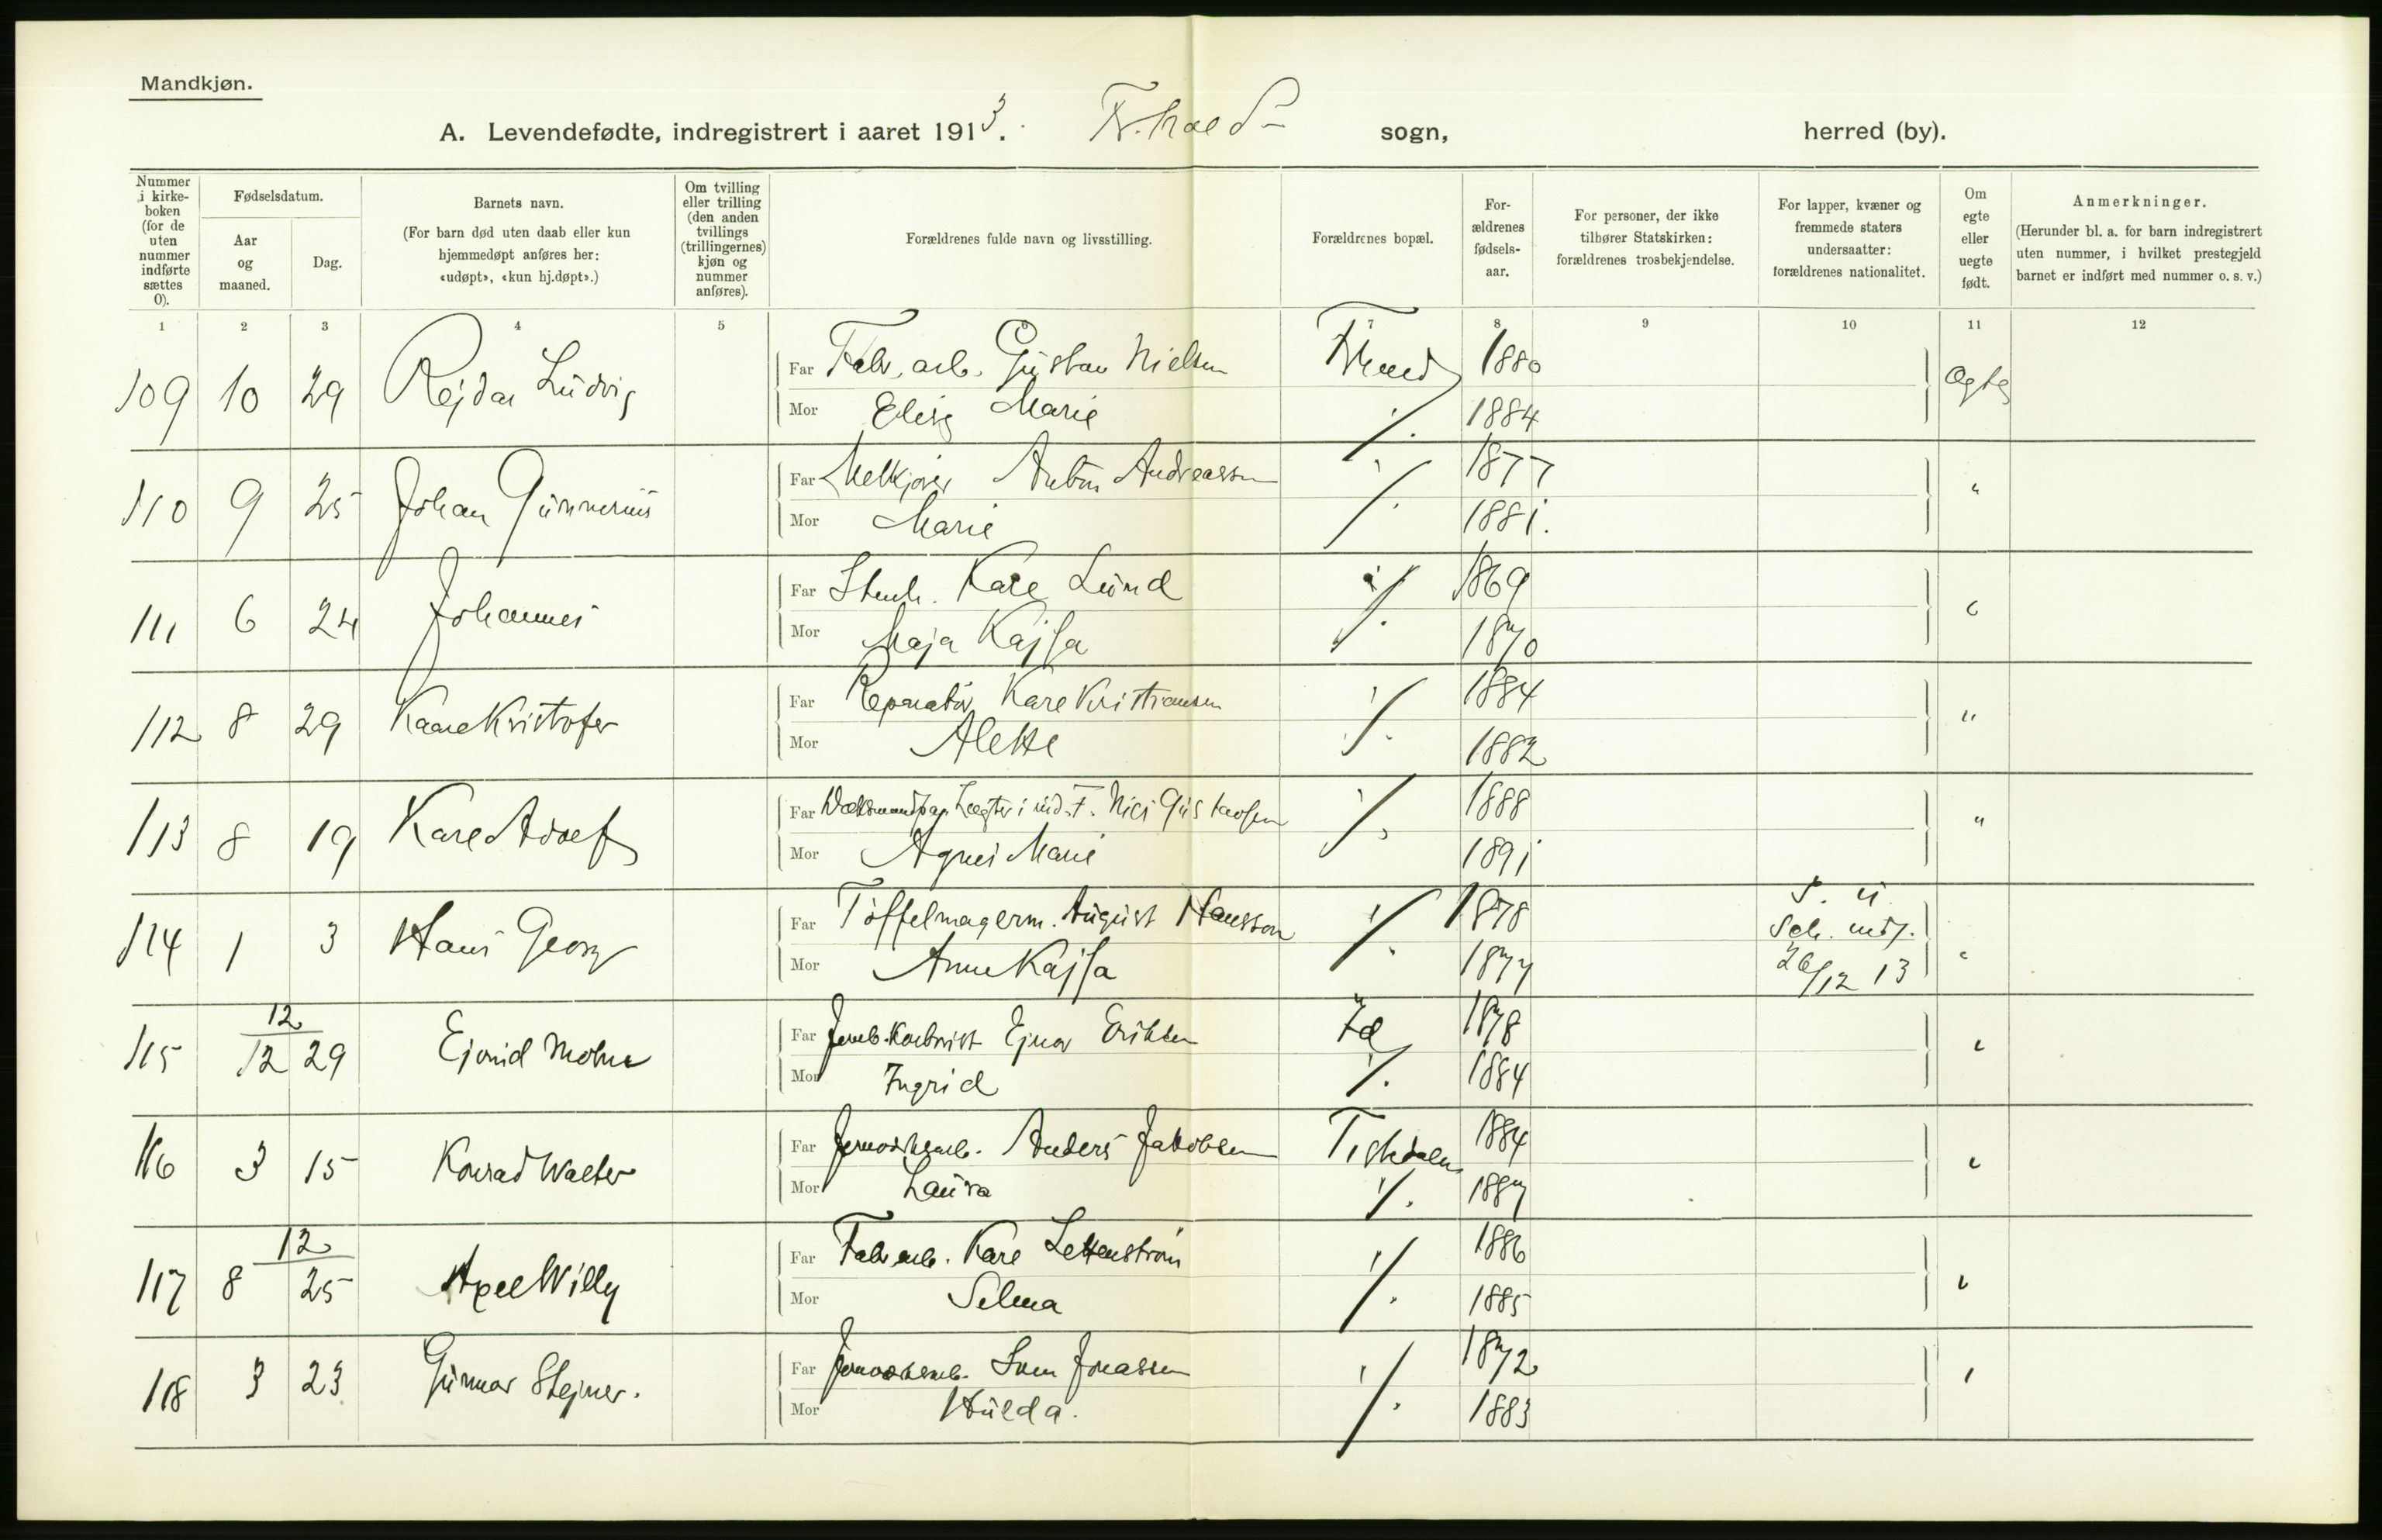 Mandkjøn.
A. Levendefødte, indregistrert i aaret 1913. Fr.hald sogn, herred (by).
Nummer i kirkeboken (for de uten nummer indførte sættes 0).
Fødselsdatum.
Aar og maaned.
Dag.
Barnets navn.
(For barn død uten daab eller kun hjemmedøpt anføres her: «udøpt», «kun hj.døpt».)
Om tvilling eller trilling (den anden tvillings (trillingernes) kjøn og nummer anføres).
Forældrenes fulde navn og livsstilling.
Forældrenes bopæl.
Forældrenes fødselsaar.
For personer, der ikke tilhører Statskirken: forældrenes trosbekjendelse.
For lapper, kvæner og fremmede staters undersaatter: forældrenes nationalitet.
Om egte eller uegte født.
Anmerkninger.
(Herunder bl. a. for barn indregistrert uten nummer, i hvilket prestegjeld barnet er indført med nummer o. s. v.)
1 2 3 4 5 6 7 8 9 10 11 12
109 10 29 Rejdar Ludvig Far Fabr. arb. Gustav Nielsen Fr.hald 1880 Ægte
Mor Elise Marie ./. 1884
110 9 25 Johan Gunnerius Far Melkjører Anton Andreassen ./. 1877 "
Mor Marie 1881.
111 6 24 Johannes Far Stenh. Karl Lund ./. 1869 "
Mor Maja Kajsa 1870
112 8 29 Kaare Kristofer Far Reparatør Karl Kristiansen ./. 1884 "
Mor Alette 1882
113 8 19 Karl Adolf Far Nils Gustavsen ./. 1888 "
Mor Agnes Marie 1891
114 1 3 Hans Georg Far Tøffelmagerm. August Hansson ./. 1878 S. u. "
Mor Anna Kajsa 1877 26/12 13
115 12 12 29 Ejvind Far Ejnar Eriksen Id 1878 "
Mor Ingrid ./. 1884
116 3 15 Konrad Walter Far Anders Jakobsen Tistedalen 1884 "
Mor Laura ./. 1887
117 8 12 25 Axel Willy Far Fabr. arb. Karl Lettenstrøm ./. 1886 "
Mor Selma 1885
118 3 23 Gunnar Stejner. Far Sven Jonassen ./. 1872 "
Mor Hulda. 1883